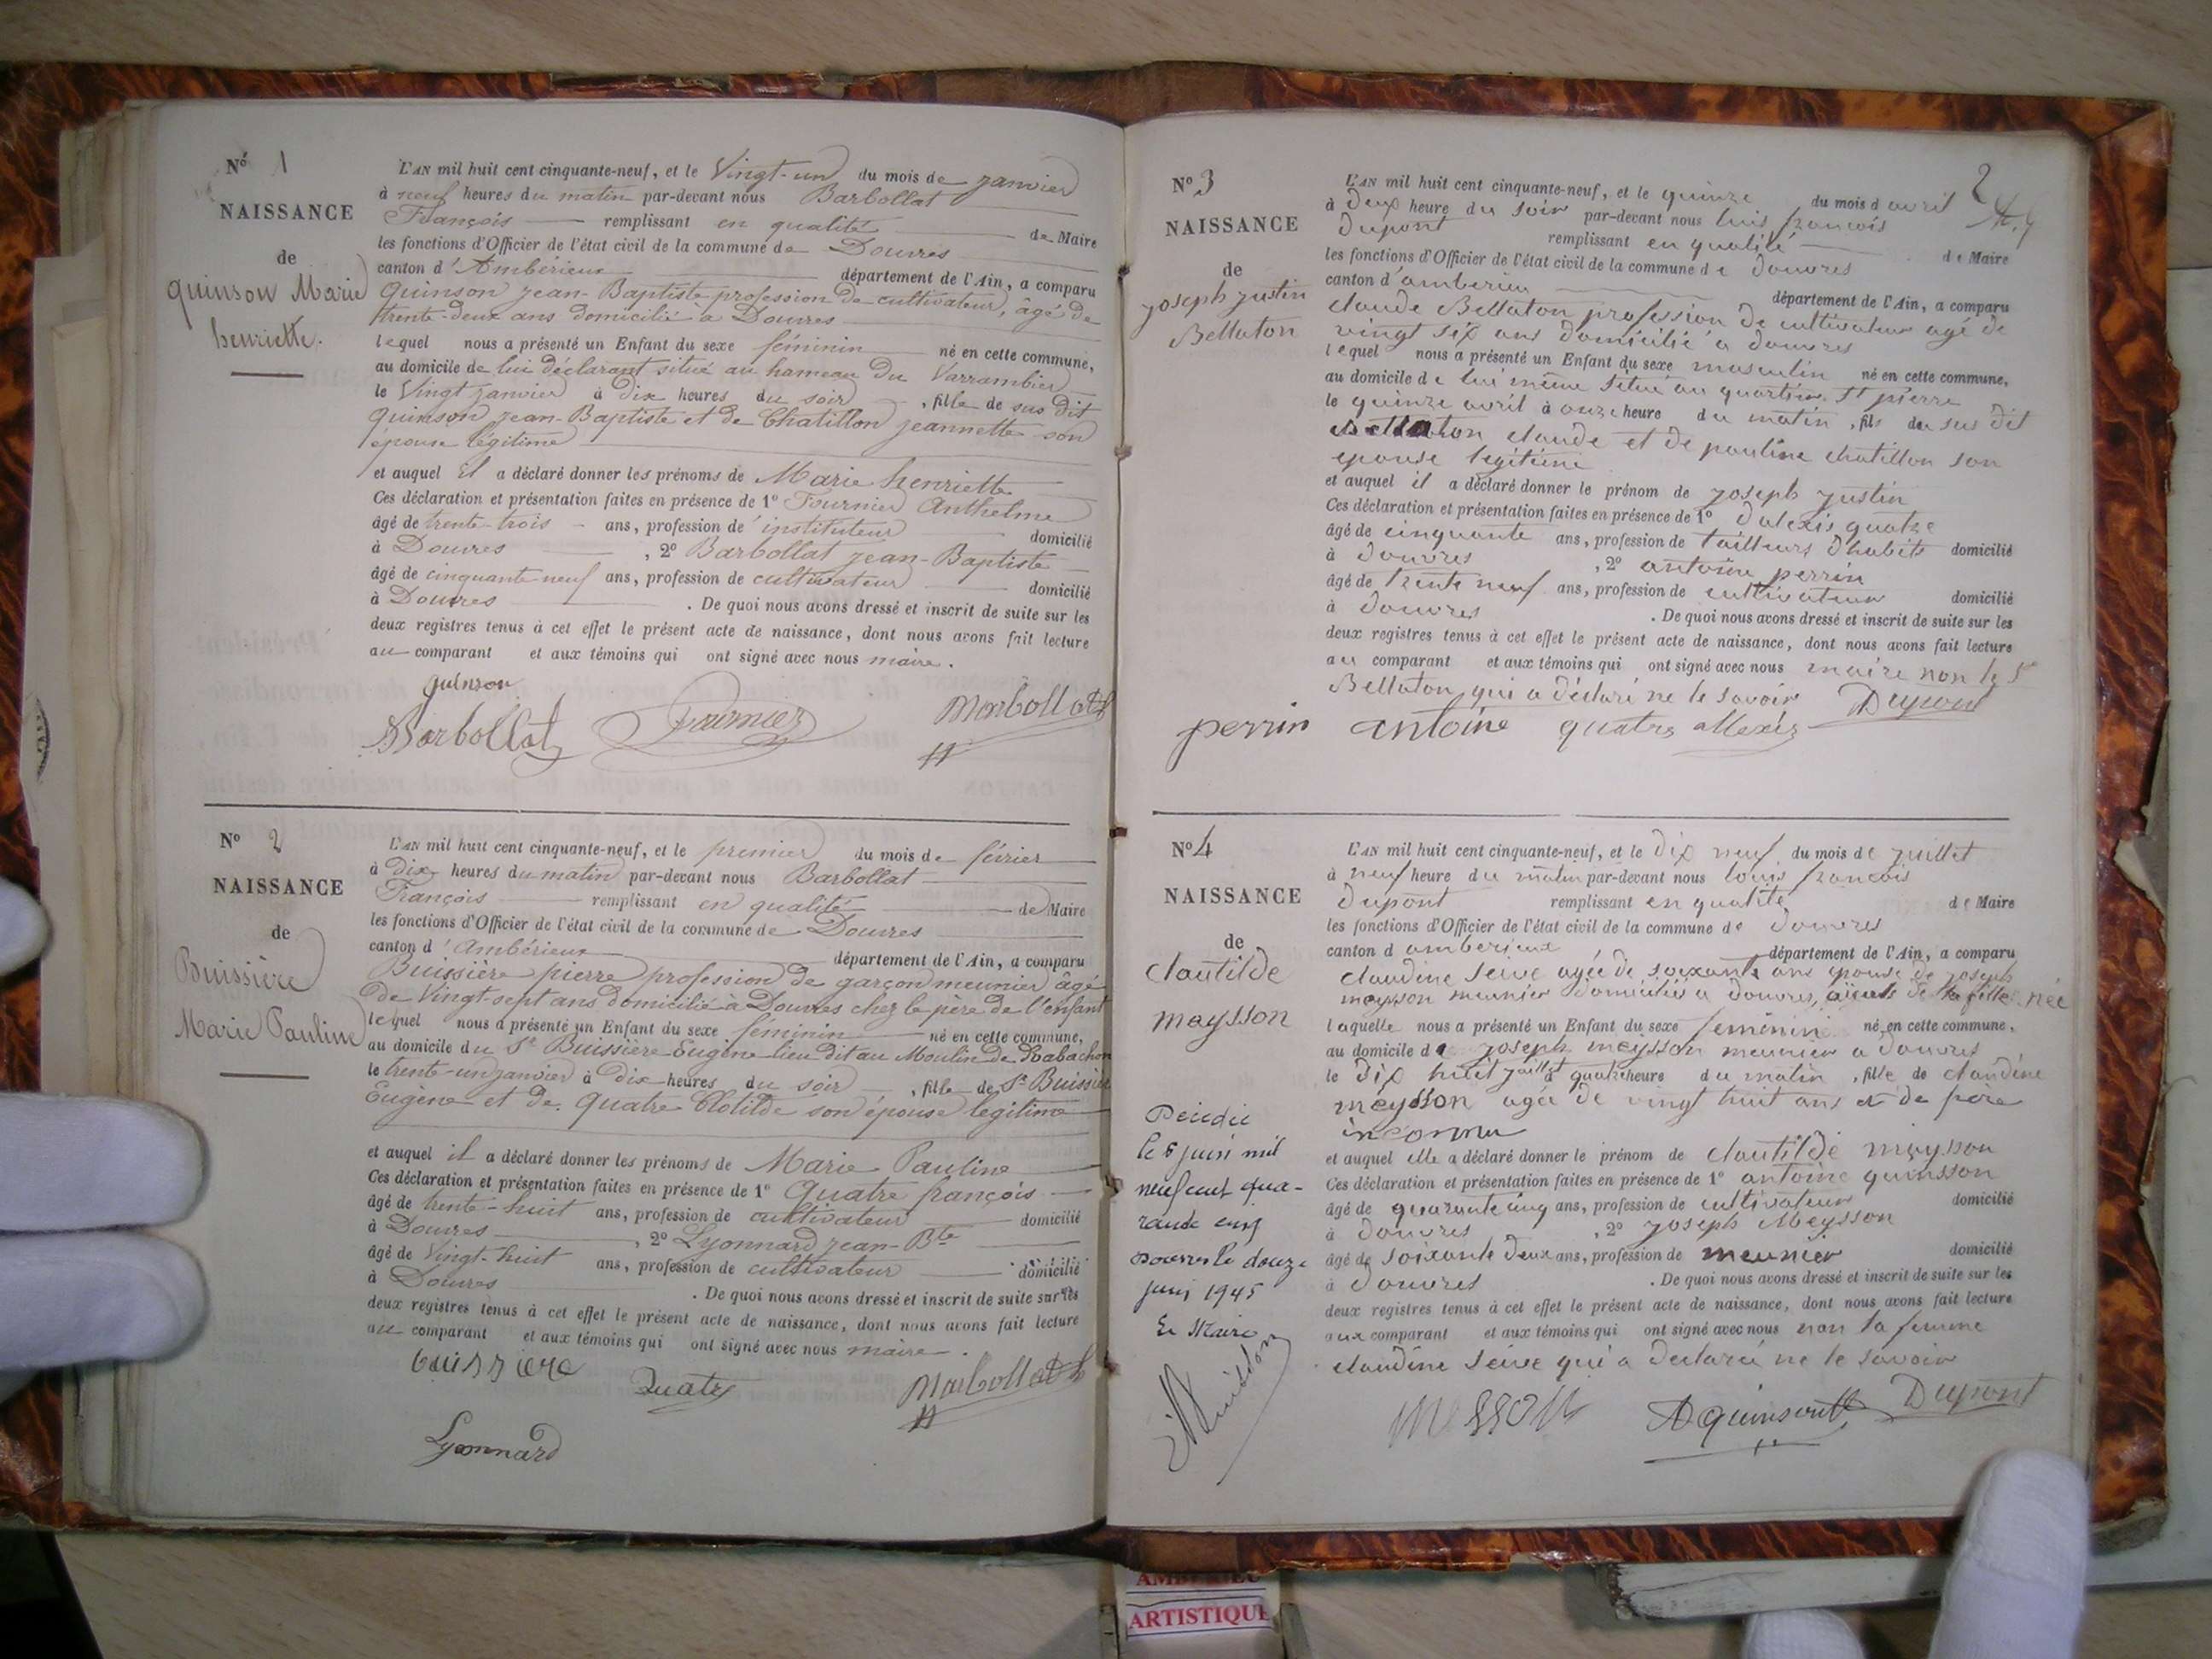 N° 1
NAISSANCE
de
quinson Marie
henriette.
L'AN mil huit cent cinquante-neuf, et le Vingt-un du mois de janvier
à neuf heures du matin par-devant nous Barbollat
François remplissant en qualité de Maire
les fonctions d'Officier de l'état civil de la commune de Douvres
canton d'Ambérieux département de l'Ain, a comparu
Quinson jean-Baptiste profession de cultivateur, âgé de
trente-deux ans domicilié à Douvres
lequel nous a présenté un Enfant du sexe féminin né en cette commune,
au domicile de lui déclarant situé au hameau du Varrambier
le Vingt janvier à dix heures du soir, fille de sus dit
quinson jean-Baptiste et de Chatillon jeannette son
épouse légitime
et auquel il a déclaré donner les prénoms de Marie henriette
Ces déclaration et présentation faites en présence de 1° Fournier Anthelme
âgé de trente-trois ans, profession de instituteur domicilié
à Douvres, 2° Barbollat jean-Baptiste
âgé de cinquante-neuf ans, profession de cultivateur domicilié
à Douvres. De quoi nous avons dressé et inscrit de suite sur les
deux registres tenus à cet effet le présent acte de naissance, dont nous avons fait lecture
au comparant et aux témoins qui ont signé avec nous maire.
quinson
Barbollat Fournier
N° 2
NAISSANCE
de
Buissière
Marie Pauline
L'AN mil huit cent cinquante-neuf, et le premier du mois de février
à Dix heures du matin par-devant nous Barbollat
François remplissant en qualité de Maire
les fonctions d'Officier de l'état civil de la commune de Douvres
canton d'Ambérieux département de l'Ain, a comparu
Buissière pierre profession de garçon meunier âgé
de Vingt-sept ans domicilié à Douvres chez le père de l'enfant
lequel nous a présenté un Enfant du sexe féminin né en cette commune,
au domicile du Sr Buissière Eugène lieu dit au Moulin de Rabachon
le trente-un janvier à dix heures du soir, fille de Sr Buissière
Eugène et de Quatre Clotilde son épouse légitime
et auquel il a déclaré donner les prénoms de Marie Pauline
Ces déclaration et présentation faites en présence de 1° Quatre françois
âgé de trente-huit ans, profession de cultivateur domicilié
à Douvres, 2° Lyonnard jean-Bte
âgé de Vingt-huit ans, profession de cultivateur domicilié
à Douvres. De quoi nous avons dressé et inscrit de suite sur les
deux registres tenus à cet effet le présent acte de naissance, dont nous avons fait lecture
au comparant et aux témoins qui ont signé avec nous maire.
buissiere Quatre
Lyonnard
2
N° 3
NAISSANCE
de
joseph justin
Bellaton
L'AN mil huit cent cinquante-neuf, et le quinze du mois d avril
à deux heure du soir par-devant nous luis francois
Dupont remplissant en qualité de Maire
les fonctions d'Officier de l'état civil de la commune de douvres
canton d'amberieu département de l'Ain, a comparu
claude Bellaton profession de cultivateur agé de
vingt six ans domicilié a douvres
lequel nous a présenté un Enfant du sexe masculin né en cette commune,
au domicile de lui même situé au quartier St pierre
le quinze avril à onze heure du matin, fils du sus dit
Bellaton claude et de pauline chatillon son
epouse legitime
et auquel il a déclaré donner le prénom de joseph justin
Ces déclaration et présentation faites en présence de 1° d'alexis quatre
âgé de cinquante ans, profession de tailleurs d'habits domicilié
à douvres, 2° antoine perrin
âgé de trente neuf ans, profession de cultivateur domicilié
à douvres. De quoi nous avons dressé et inscrit de suite sur les
deux registres tenus à cet effet le présent acte de naissance, dont nous avons fait lecture
au comparant et aux témoins qui ont signé avec nous maire non le S
Bellaton qui a déclaré ne le savoir Dupont
perrin antoine quatre allexis
N° 4
NAISSANCE
de
clautilde
meysson
L'AN mil huit cent cinquante-neuf, et le dix neuf du mois de juillet
à neuf heure du matin par-devant nous louis francois
Dupont remplissant en qualité de Maire
les fonctions d'Officier de l'état civil de la commune de douvres
canton d amberieux département de l'Ain, a comparu
claudine Seive agée de soixante ans epouse de joseph
meysson meunier domiciliés a douvres, aïeule de la fille née
laquelle nous a présenté un Enfant du sexe feminin né en cette commune,
au domicile de joseph meysson meunier a douvres
le dix huit juillet à quatre heure du matin, fille de claudine
meysson agée de vingt huit ans et de père
inconnu
et auquel elle a déclaré donner le prénom de clautilde meysson
Ces déclaration et présentation faites en présence de 1° antoine quinsson
âgé de quarante cinq ans, profession de cultivateur domicilié
à douvres, 2° joseph Meysson
âgé de soixante deux ans, profession de meunier domicilié
à douvres. De quoi nous avons dressé et inscrit de suite sur les
deux registres tenus à cet effet le présent acte de naissance, dont nous avons fait lecture
aux comparant et aux témoins qui ont signé avec nous non la femme
claudine Seive qui a declaré ne le savoir
Dupont
le 8 juin mil
neuf cent qua-
rante cinq
Douvres le douze
juin 1945
Le Maire
AMBERIEU
ARTISTIQUE